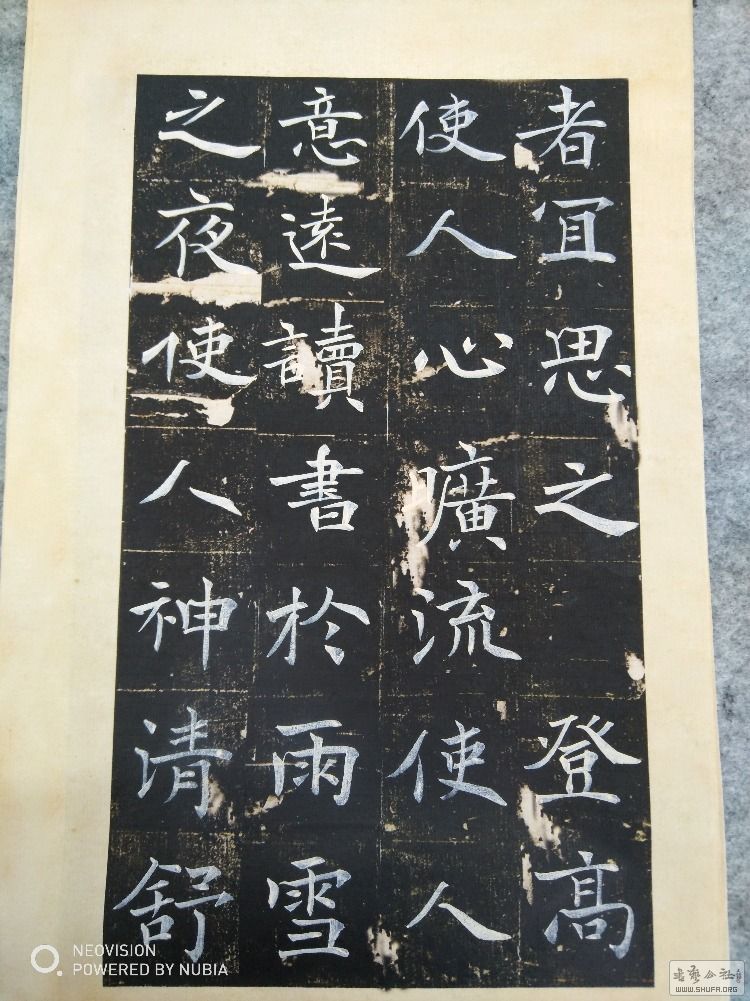 者宜思之登髙
使人心曠流使人
意遠讀書於雨雪
之夜使人神清舒
NEOVISION
POWERED BY NUBIA
WWW.SHUFA.ORG